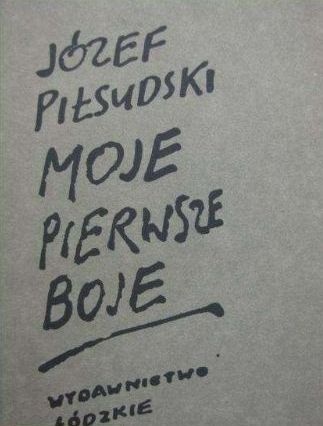 JÓZEF
PIŁSUDSKI
MOJE
PIERWSZE
BOJE
WYDAWNICTWO
ŁÓDZKIE